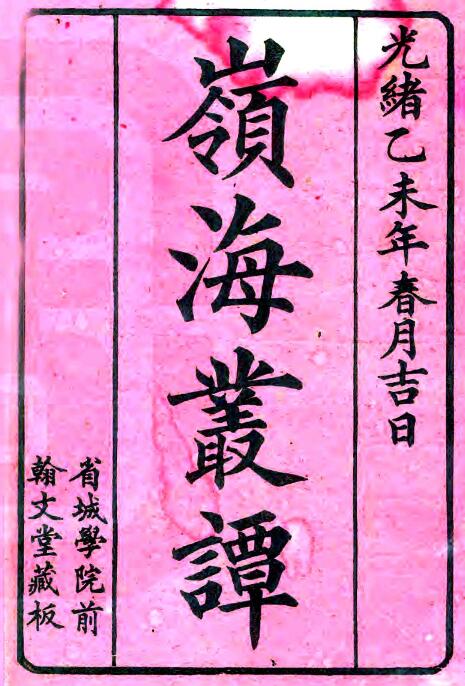 光緒乙未年春月吉日
嶺海叢譚
省城學院前
翰文堂藏板